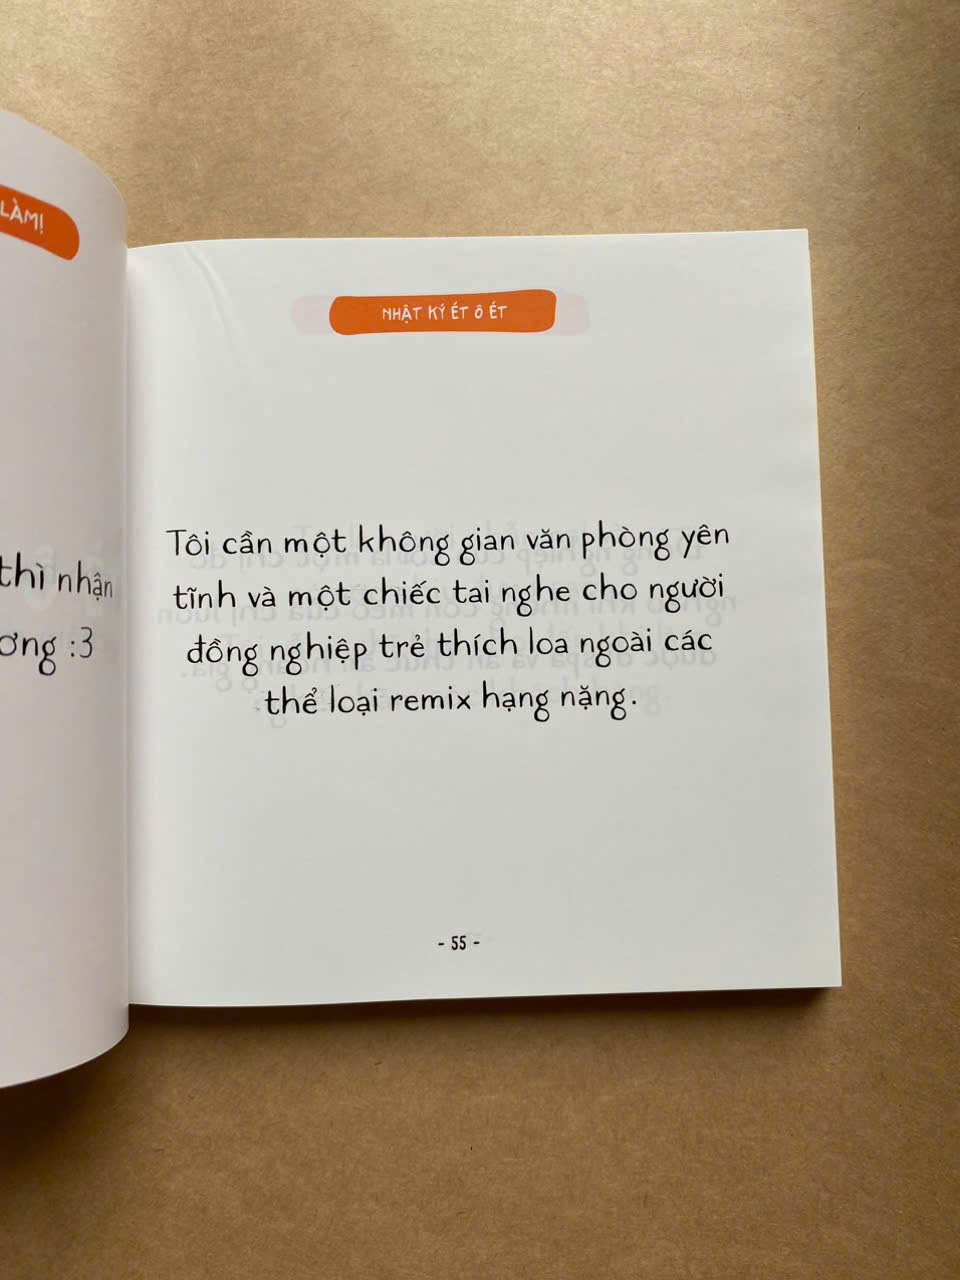 LÀM!
thì nhận
ơng :3
NHẬT KÝ ÉT Ô ÉT
Tôi cần một không gian văn phòng yên
tĩnh và một chiếc tai nghe cho người
đồng nghiệp trẻ thích loa ngoài các
thể loại remix hạng nặng.
- 55 -